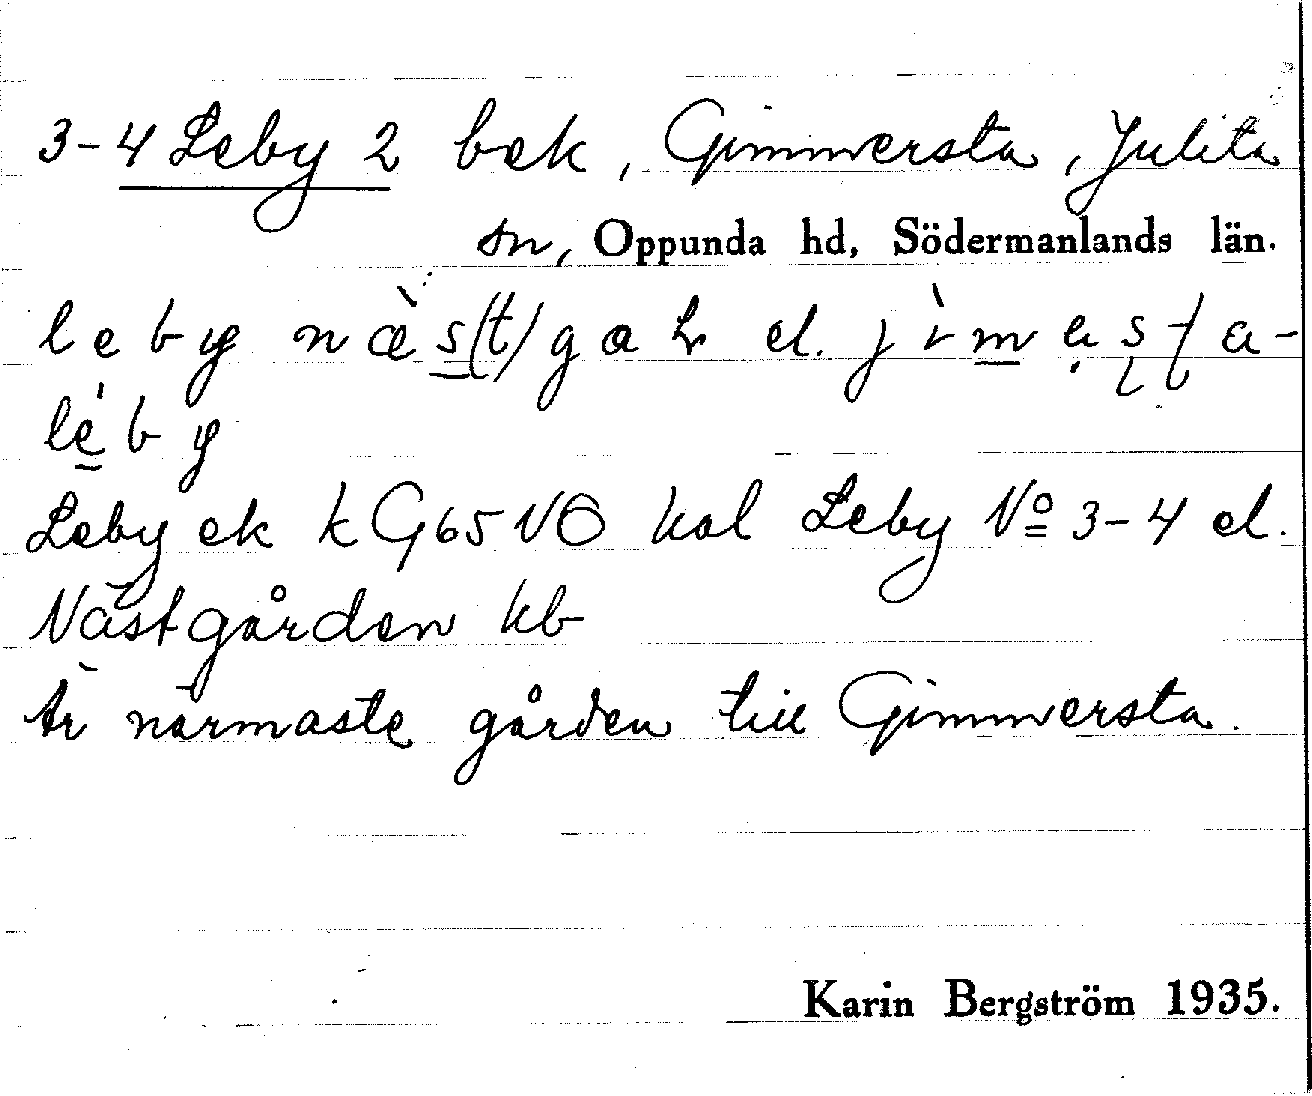 3-4 Leby 2 bek, Gimmersta, Julita
sn, Oppunda hd, Södermanlands län.
leby näs(t)gaḷ el. jìmesta-
léby
Leby ek k G65 NO kal Leby Nº 3-4 el.
Nästgården kb
Är närmaste gården till Gimmersta.
Karin Bergström 1935.